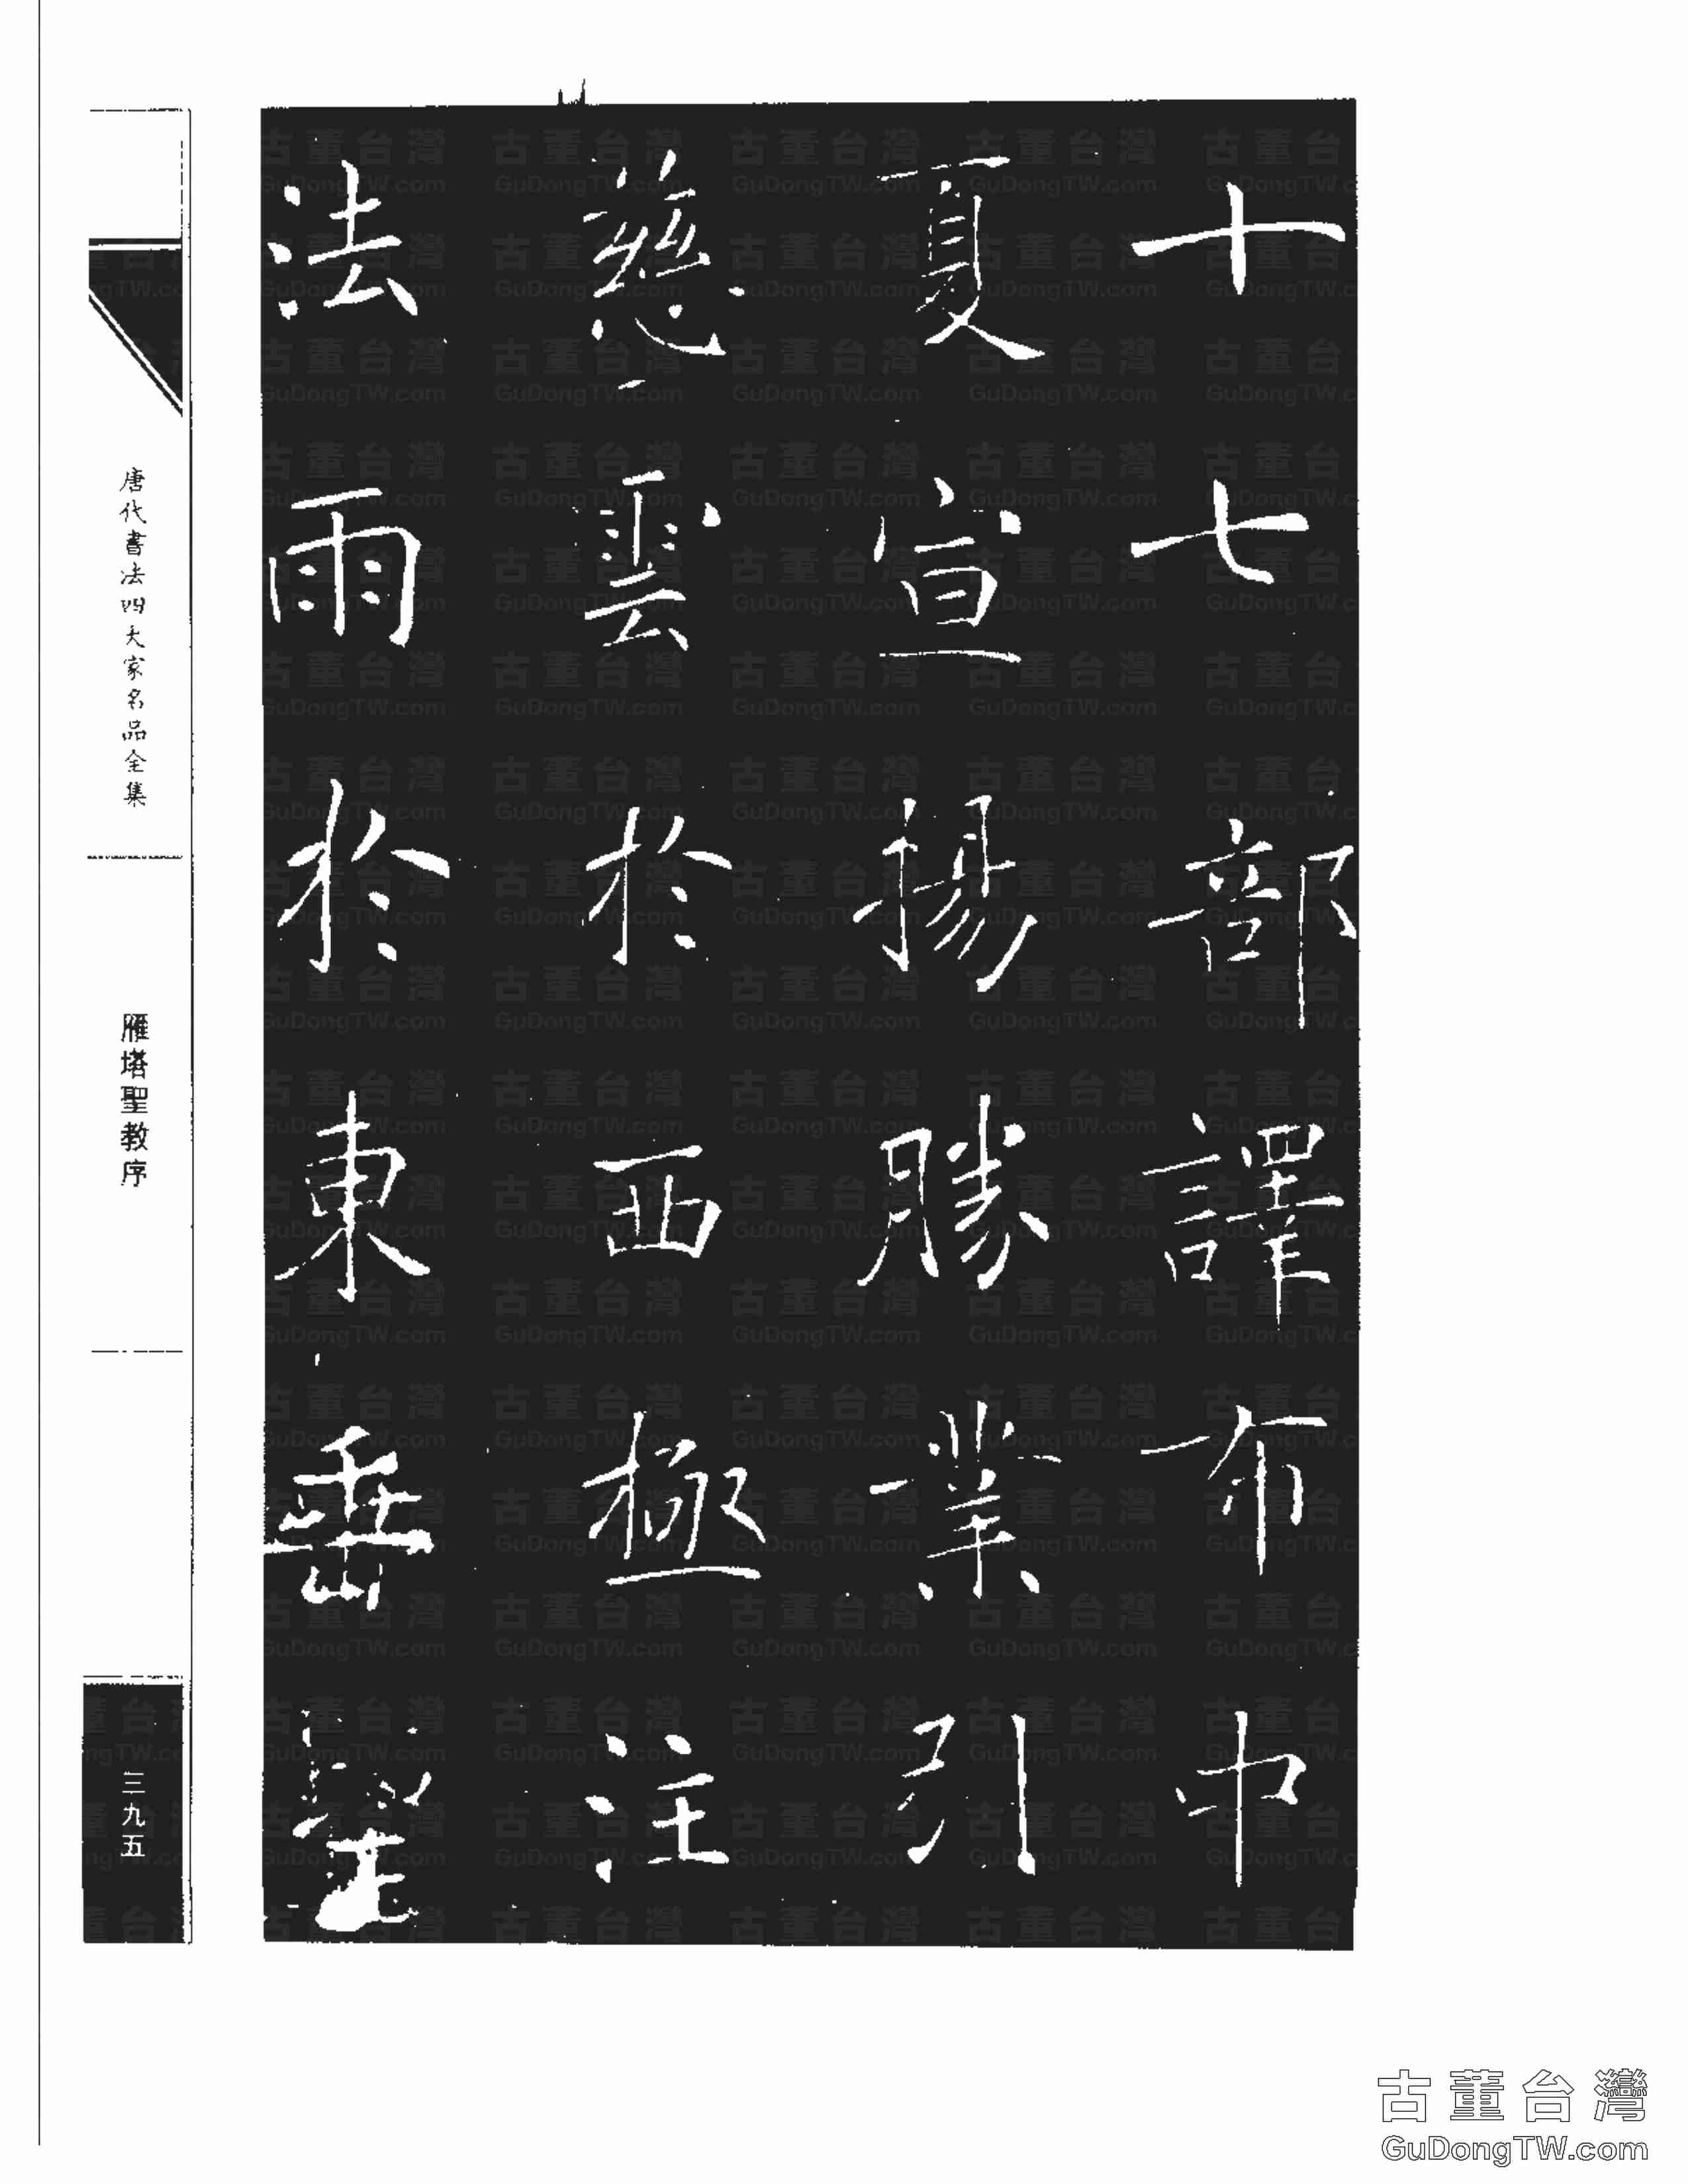 十七部譯布中
夏宣揚勝業引
慈雲於西極注
法雨於東垂聖
唐代書法四大家名品全集
雁塔聖教序
三九五
古董台灣
GuDongTW.com